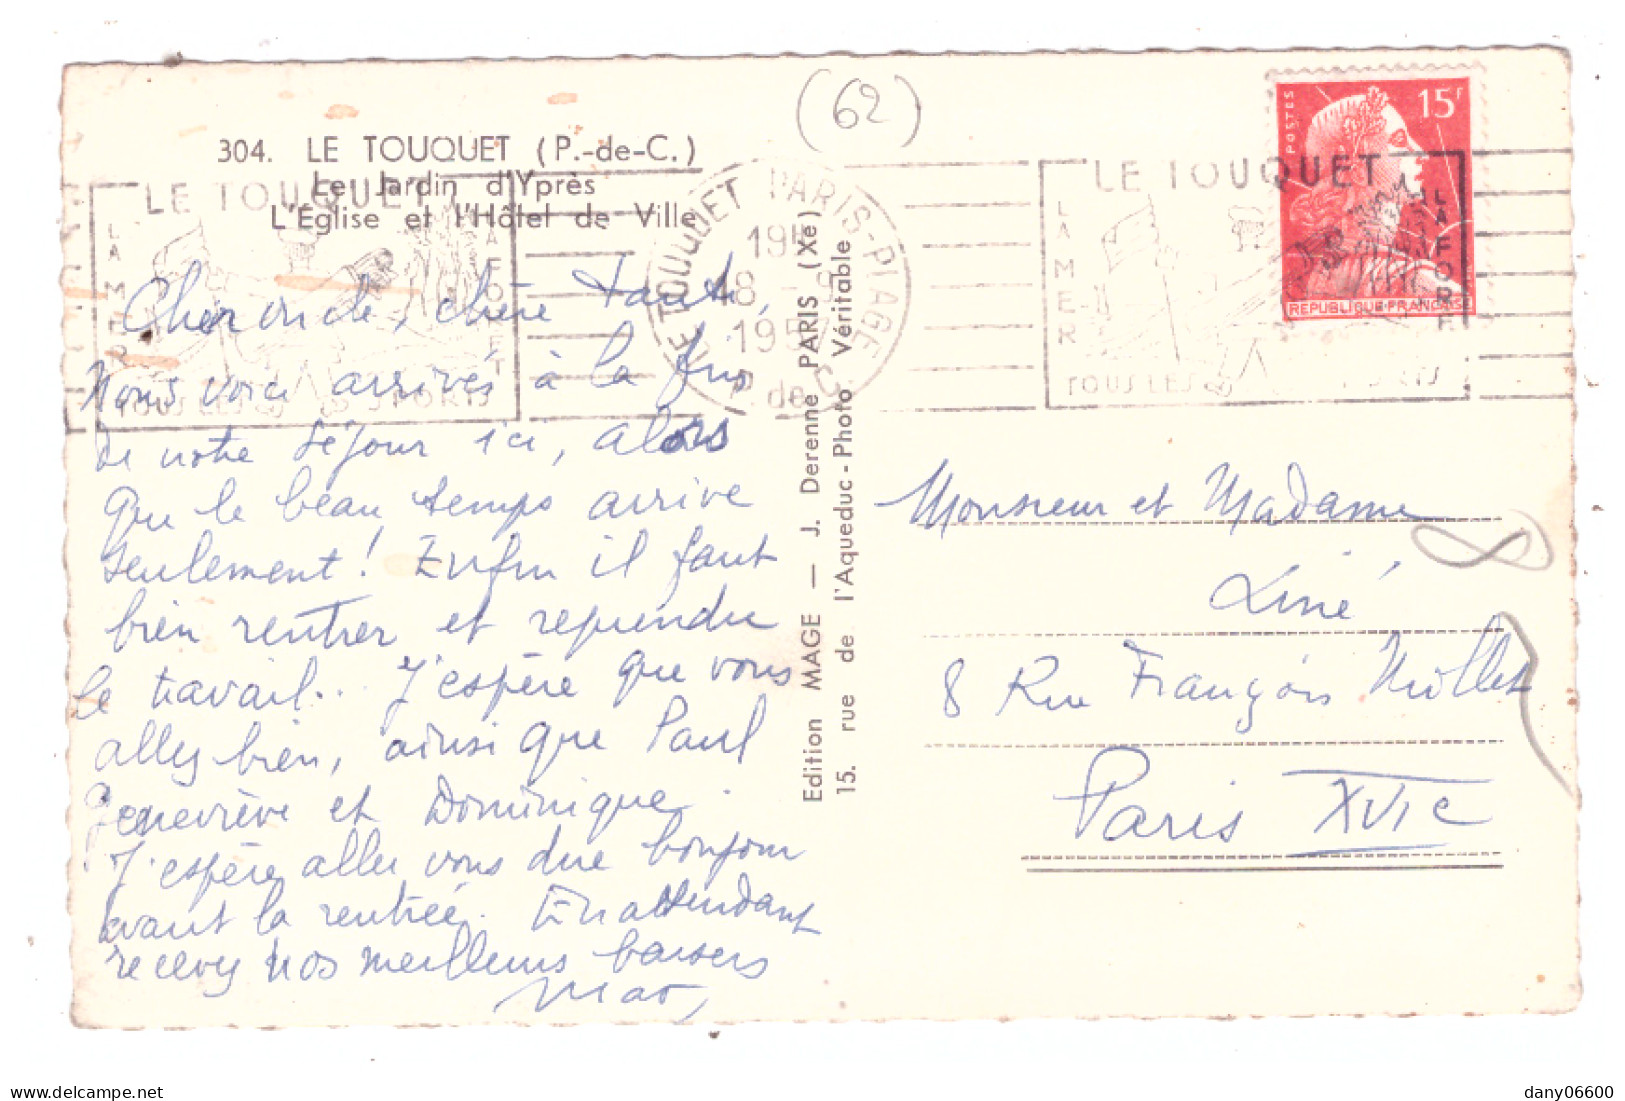 (62)
304. LE TOUQUET (P.-de-C.)
Le Jardin d'Yprès
L'Église et l'Hôtel de Ville
LE TOUQUET
LA MER
LA FORET
TOUS LES SPORTS
LE TOUQUET PARIS-PLAGE
18
P. de C.
LE TOUQUET
LA MER
LA FORE
TOUS LES SPORTS
POSTES
15F
REPUBLIQUE FRANÇAISE
Cher oncle, chère tante,
Nous voici arrivés à la fin
de notre séjour ici, alors
que le beau temps arrive
seulement! Enfin il faut
bien rentrer et reprendre
le travail... J'espère que vous
allez bien, ainsi que Paul
Geneviève et Dominique.
J'espère aller vous dire bonjour
avant la rentrée. En attendant
recevez nos meilleurs baisers
Edition MAGE — J. Derenne PARIS (Xe)
15. rue de l'Aqueduc - Photo Véritable
Monsieur et Madame
Liné
8 Rue François Millet
Paris XVIe
delcampe.net
dany06600